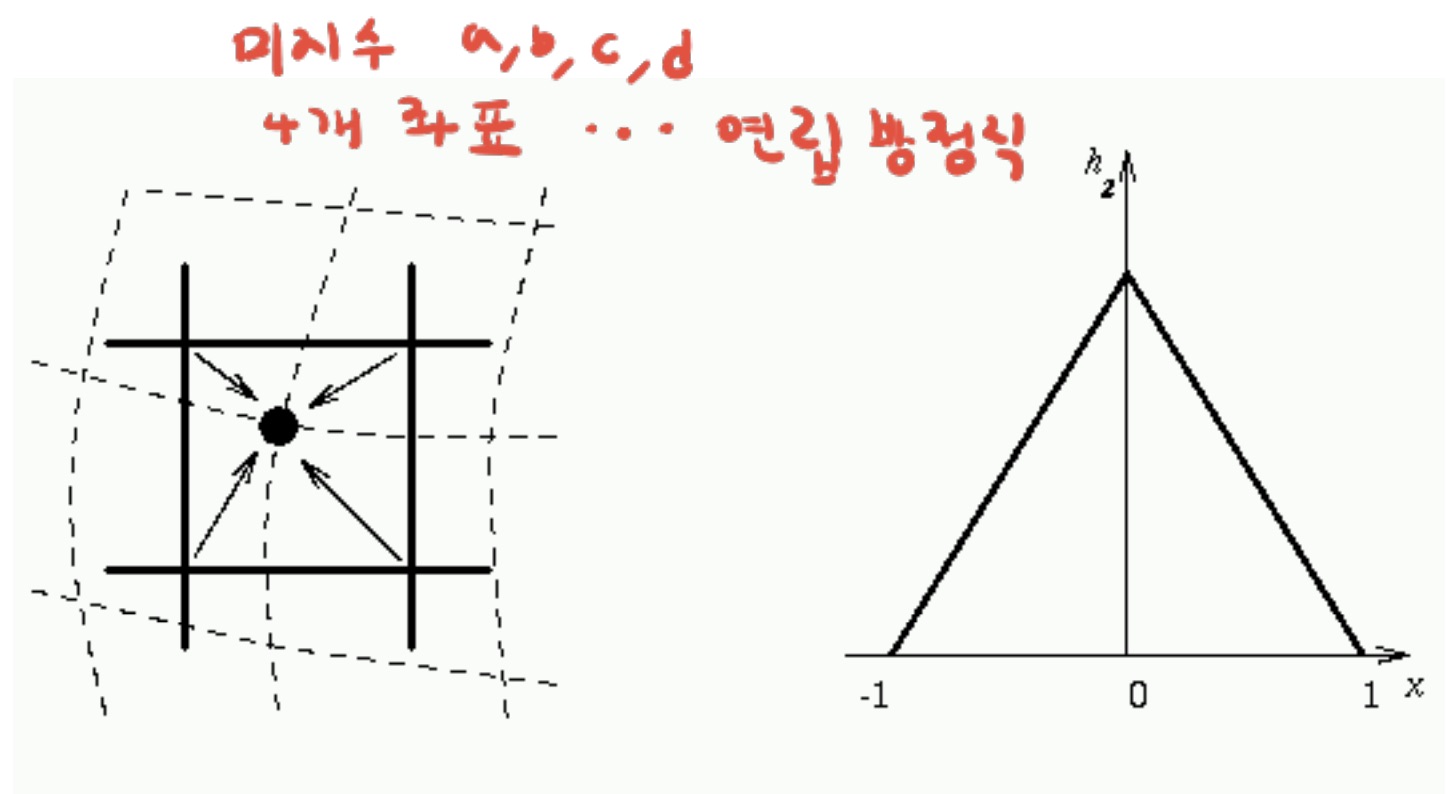 미지수 a, b, c, d
4개 좌표 ... 연립 방정식
h₂
-1 0 1 x